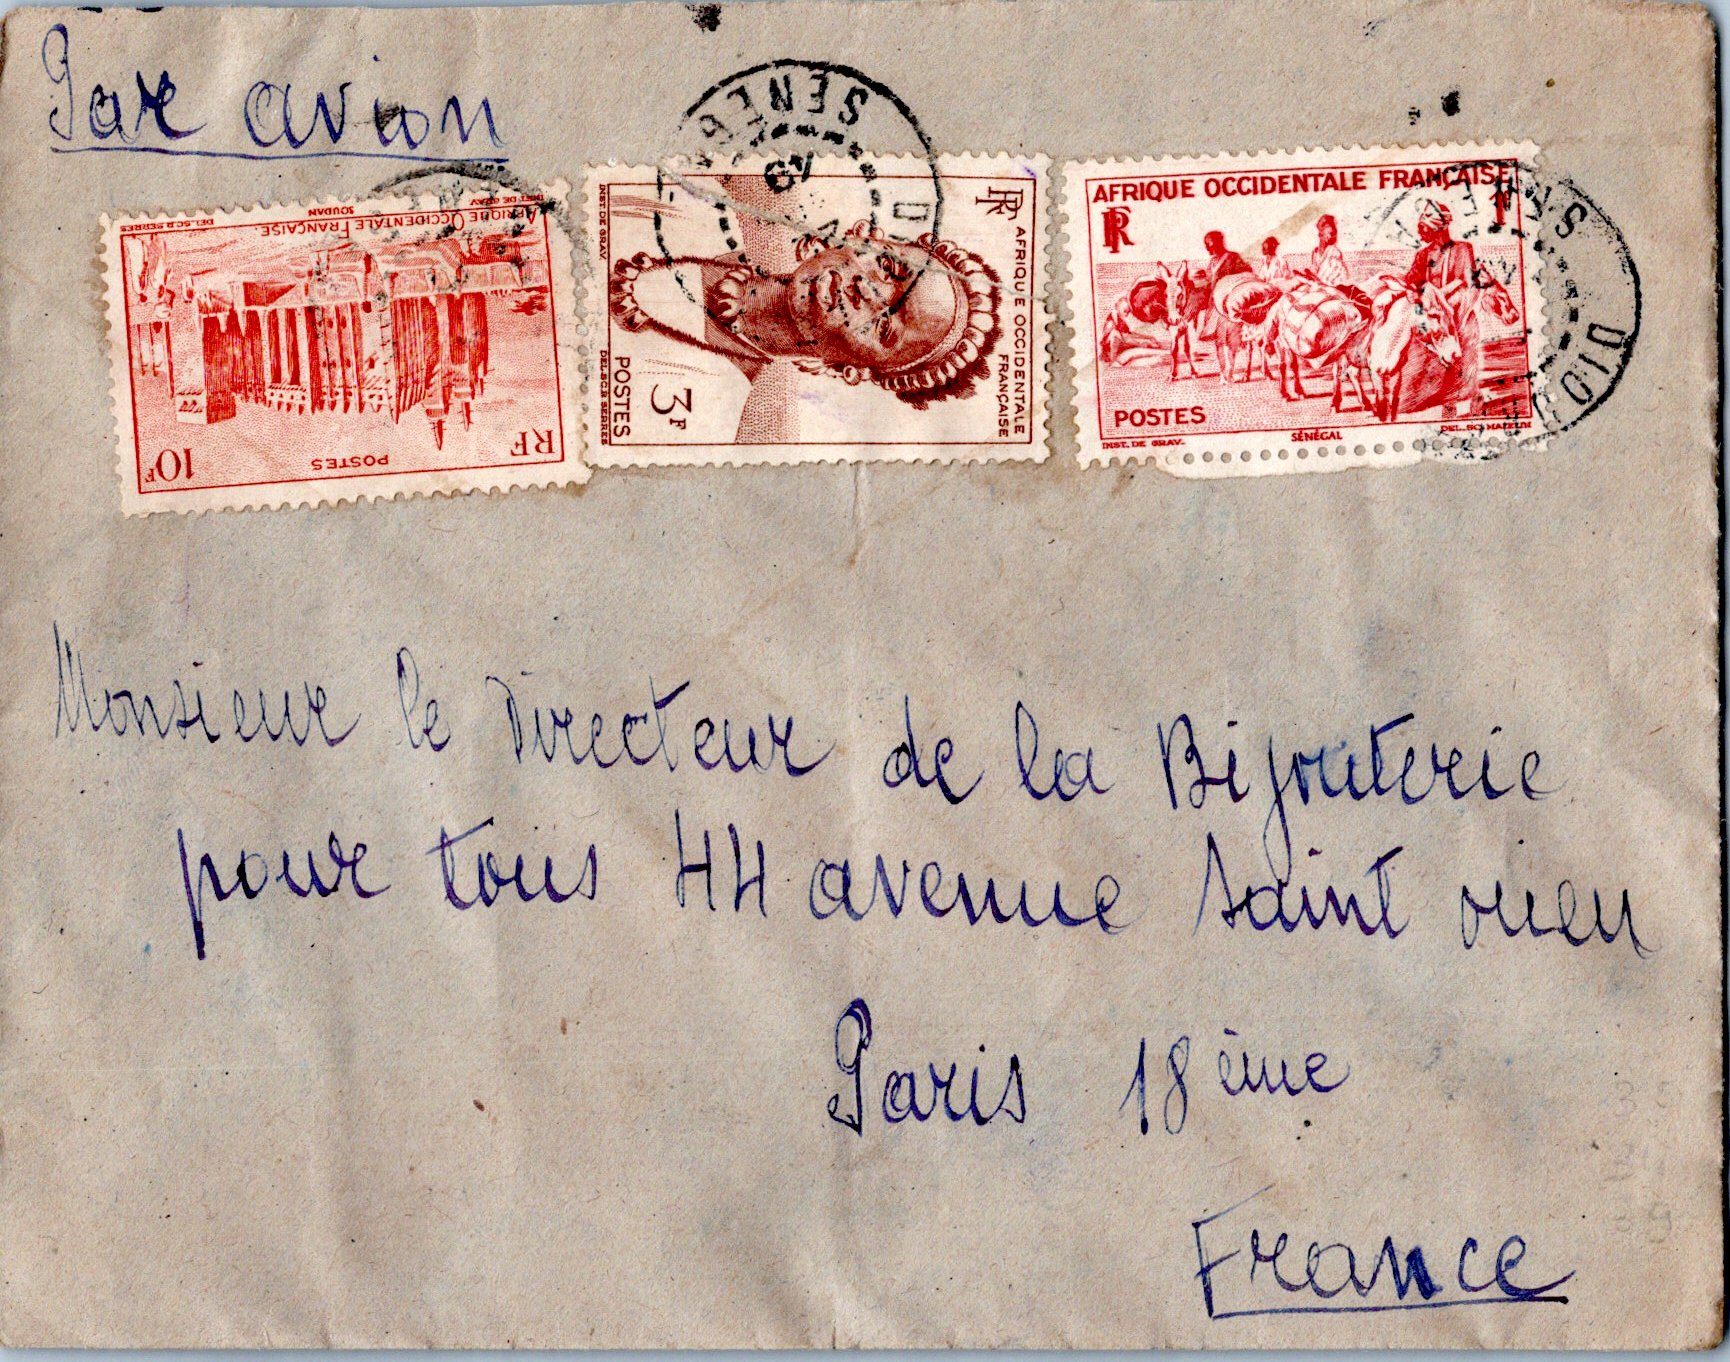 Par avion
INST DE GRAV
SOUDAN
DEL.SC.R SERRES
AFRIQUE OCCIDENTALE FRANÇAISE.
POSTES
RF
10F
INST DE GRAV.
RF
AFRIQUE OCCIDENTALE
FRANÇAISE
POSTES
3F
DEL.SC.R SERRES
SENEG
49
AFRIQUE OCCIDENTALE FRANÇAISE
RF
POSTES
INST. DE GRAV.
SÉNÉGAL
DIOUR
Monsieur le Directeur de la Bijouterie
pour tous 44 avenue Saint ouen
Paris 18 ème
France